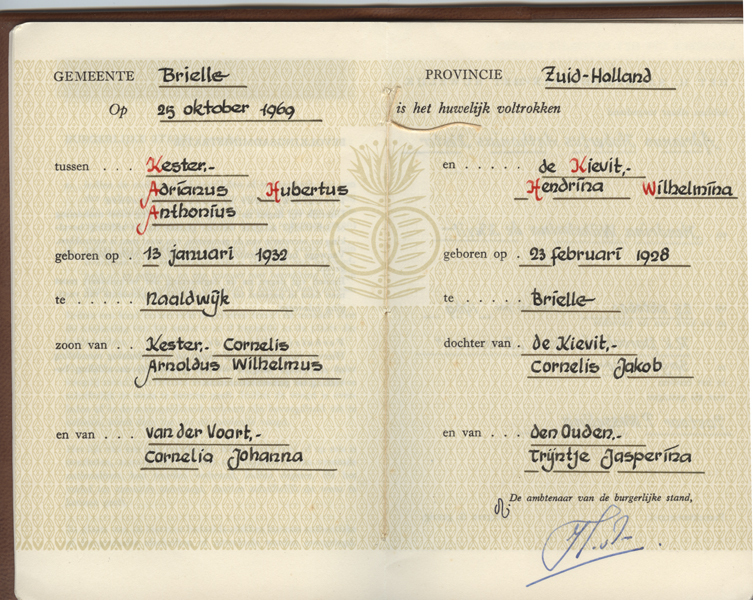 GEMEENTE Brielle
Op 25 oktober 1969
tussen . . . Kester,-
Adrianus Hubertus
Anthonius
geboren op . 13 januari 1932
te . . . . . Naaldwijk
zoon van . . Kester,- Cornelis
Arnoldus Wilhelmus
en van . . . van der Voort,-
Cornelia Johanna
PROVINCIE Zuid-Holland
is het huwelijk voltrokken
en . . . . . de Kievit,-
Hendrina Wilhelmina
geboren op . 23 februari 1928
te . . . . . Brielle
dochter van . de Kievit,-
Cornelis Jakob
en van . . . den Ouden,-
Trijntje Jasperina
De ambtenaar van de burgerlijke stand,